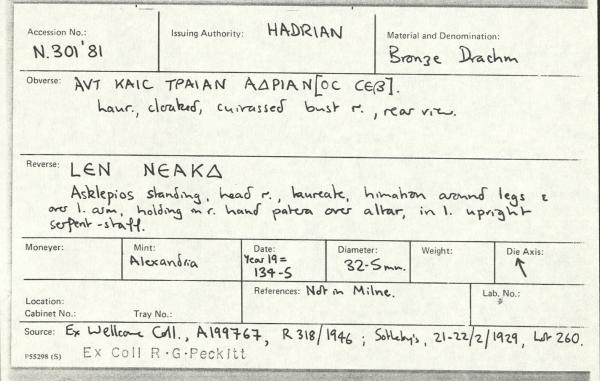 Accession No.: Issuing Authority: HADRIAN Material and Denomination:
N.301'81 Bronze Drachm
Obverse: ΑVΤ ΚΑΙC ΤΡΑΙΑΝ ΑΔΡΙΑΝ[ΟC CЄB].
laur., cloaked, cuirassed bust r., rear view.
Reverse: LЄN NЄAKΔ
Asklepios standing, head r., laureate, himation around legs &
over l. arm, holding in r. hand patera over altar, in l. upright
serpent-staff.
Moneyer: Mint: Date: Diameter: Weight: Die Axis:
Alexandria Year 19 = 32-5mm. ↖
134-5
Location: References: Not in Milne. Lab. No.:
Cabinet No.: Tray No.:
Source: Ex Wellcome Coll., A199767, R318/1946; Sotheby's, 21-22/2/1929, Lot 260.
P55298 (S) Ex Coll R.G.Peckitt